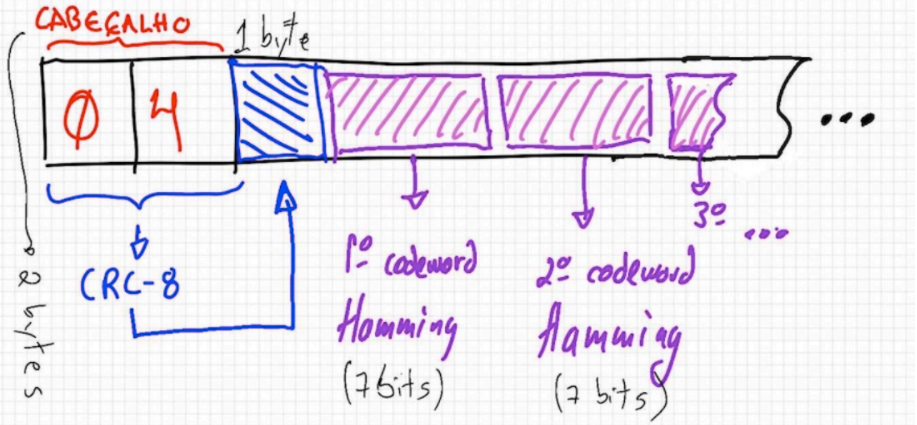 CABEÇALHO
1 byte
Ø 4
...
2 bytes
CRC-8
1º codeword
Hamming
(7 bits)
2º codeword
Hamming
(7 bits)
3º
...